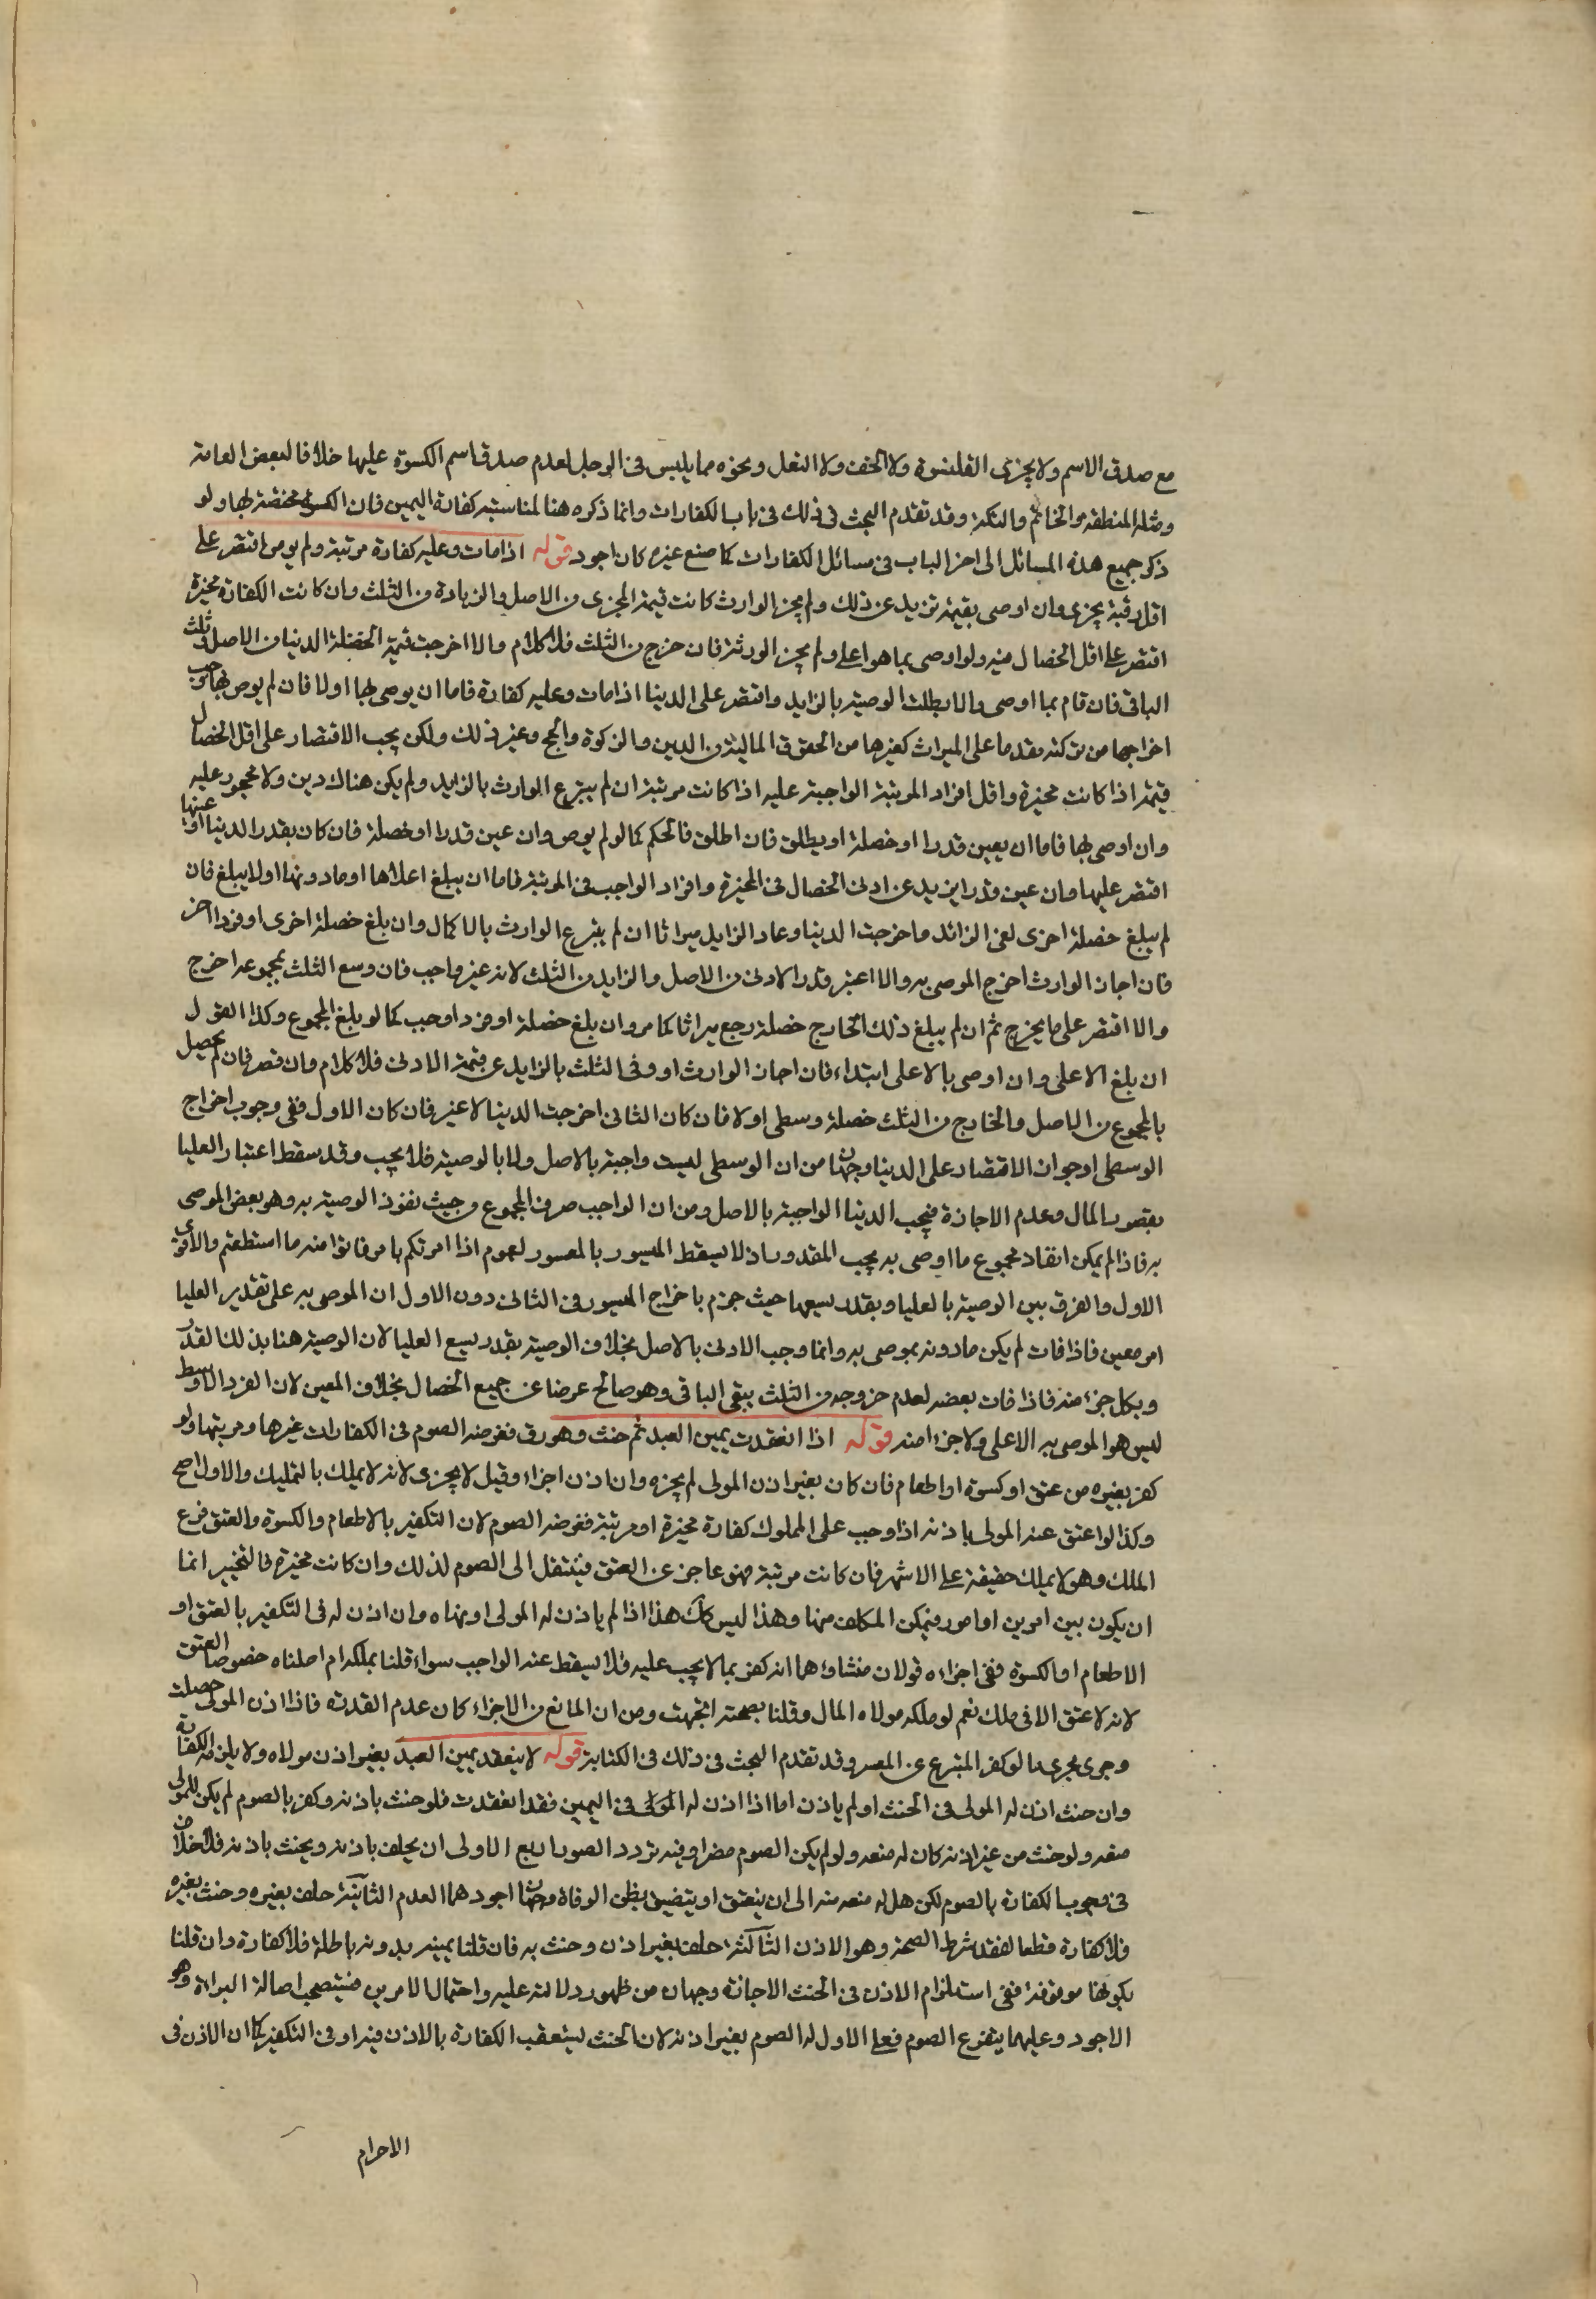 مع صدق الاسم ولا يجزى القلنسوة ولا الخف ولا النعل ونحوه مما يلبس في الرجل لعدم صدق اسم الكسوة عليها خلافا لبعض العامة
ومثله المنطقة والخاتم والتكة وقد تقدم البحث في ذلك في باب الكفارات وانما ذكره هنا لمناسبة كفارة اليمين فان الكسوة مختصة بها ولو
ذكر جميع هذه المسائل الى اخر الباب في مسائل الكفارات كما صنع غيره كان اجود قوله اذا مات وعليه كفارة مرتبة ولم يوص اقتصر على
اقل رقبة يجزى وان اوصى بقيمة تزيد عن ذلك ولم يجز الوارث كانت قيمة المجزى من الاصل والزيادة من الثلث وان كانت الكفارة مخيرة
اقتصر على اقل الخصال قيمة ولو اوصى بما هو اعلى ولم يجز الورثة فان خرج من الثلث فلا كلام والا اخرجت قيمة الخصلة الدنيا من الاصل وثلث
الباقى فان قام بما اوصى والا بطلت الوصية بالزايد واقتصر على الدنيا اذا مات وعليه كفارة فاما ان يوصى بها اولا فان لم يوص بها وجب
اخراجها من تركته مقدما على الميراث كغيرها من الحقوق المالية من الدين والزكوة والحج وغير ذلك ولكن يجب الاقتصار على اقل الخصال
قيمة اذا كانت مخيرة واقل افراد المرتبة الواجبة عليه اذا كانت مرتبة ان لم يتبرع الوارث بالزايد ولم يكن هناك دين ولا محجور عليه
وان اوصى بها فاما ان يعين قدرا او خصلة او يطلق فان اطلق فالحكم كما لو لم يوص وان عين قدرا او خصلة فان كان بقدر الدنيا او عينها
اقتصر عليها وان عين قدرا يزيد عن ادنى الخصال في المخيرة وافراد الواجب في المرتبة فاما ان يبلغ اعلاها او ما دونها اولا يبلغ فان
لم يبلغ خصلة اخرى لغى الزائد واخرجت الدنيا وعاد الزايد ميراثا ان لم يتبرع الوارث بالاكمال وان بلغ خصلة اخرى او فردا اخر
فان اجاز الوارث اخرج الموصى به والا اعتبر قدر الادنى من الاصل والزايد من الثلث لانه غير واجب فان وسع الثلث بمجموعه اخرج
والا اقتصر على ما يخرج ثم ان لم يبلغ ذلك الخارج خصلة رجع ميراثا كما مر وان بلغ خصلة او فردا وجب كما لو بلغ المجموع وكذا القول
ان بلغ الاعلى وان اوصى بالاعلى ابتداء فان اجاز الوارث او وفى الثلث بالزايد عن قيمة الادنى فلا كلام وان قصر فان لم يحصل
بالمجموع من الاصل والخارج من الثلث خصلة وسطى اولا فان كان الثانى اخرجت الدنيا لا غير فان كان الاول ففى وجوب اخراج
الوسطى او جواز الاقتصار على الدنيا وجهان من ان الوسطى ليست واجبة بالاصل ولا بالوصية فلا يجب وقد سقط اعتبار العليا
بقصور المال وعدم الاجازة فيجب الدنيا الواجبة بالاصل ومن ان الواجب صرف المجموع من حيث نفوذ الوصية به وهو بعض الموصى
به فاذا لم يمكن انفاذ مجموع ما اوصى به يجب المقدور اذ لا يسقط الميسور بالمعسور لعموم اذا امرتكم بامر فاتوا منه ما استطعتم والاقوى
الاول والفرق بين الوصية بالعليا وبقدر يسعها حيث جزم باخراج الميسور في الثانى دون الاول ان الموصى به على تقدير العليا
امر معين فاذا فات لم يكن ما دونه بموصى به وانما وجب الادنى بالاصل بخلاف الوصية بقدر يسع العليا لان الوصية هنا بذلك القدر
وبكل جزء منه فاذا فات بعضه لعدم خروجه من الثلث يبقى الباقى وهو صالح عوضا عن جميع الخصال بخلاف المعين لان الفرد الاوسط
ليس هو الموصى به الاعلى ولا جزءا منه قوله اذا انعقدت يمين العبد ثم حنث وهو رق ففرضه الصوم في الكفارات غيرها ومرتبها ولو
كفر بغيره من عتق او كسوة او اطعام فان كان بغير اذن المولى لم يجزه وان اذن اجزاء وقيل لا يجزى لانه لا يملك بالتمليك والاول اصح
وكذا لو اعتق عنه المولى باذنه اذا وجب على المملوك كفارة مخيرة او مرتبة ففرضه الصوم لان التكفير بالاطعام والكسوة والعتق فرع
الملك وهو لا يملك حقيقة على الاشهر فان كانت مرتبة فهو عاجز عن العتق فينتقل الى الصوم لذلك وان كانت مخيرة فالتخيير انما
ان يكون بين امرين او امور فيمكن المكلف منها وهذا ليس كك هذا اذا لم ياذن له المولى او نهاه وان اذن له في التكفير بالعتق او
الاطعام او الكسوة ففى اجزاءه قولان منشاؤهما انه كفر بما لا يجب عليه فلا يسقط عنه الواجب سواء قلنا بملكه ام احلناه خصوصا العتق
لانه لا عتق الا في ملك نعم لو ملكه مولاه المال وقلنا بصحته اتجهت ومن ان المانع من الاجزاء كان عدم القدرة فاذا اذن المولى حصلت
وجرى مجرى ما لو كفر المتبرع عن المعسر وقد تقدم البحث في ذلك في الكتابة قوله لا ينعقد يمين العبد بغير اذن مولاه ولا يلزمه الكفارة
وان حنث اذن له المولى في الحنث او لم ياذن اما اذا اذن له المولى في اليمين فقد انعقدت فلو حنث باذنه وكفر بالصوم لم يكن للمولى
منعه ولو حنث من غير اذنه كان له منعه ولو لم يكن الصوم مضرا وفيه تردد الصور اربع الاولى ان يحلف باذنه ويحنث باذنه فلا خلاف
في وجوب الكفارة بالصوم لكن هل له منعه منه الى ان ينعتق او يتضيق بظن الوفاة وجهان اجودهما العدم الثانية حلف بغيره وحنث بغيره
فلا كفارة قطعا لفقد شرط الصحة وهو الاذن الثالثة حلف بغير اذن وحنث به فان قلنا يمينه بدونه باطلة فلا كفارة وان قلنا
بكونها موقوفة ففى استلزام الاذن في الحنث الاجازة وجهان من ظهور دلالته عليه واحتمال الامرين فيستصحب اصالة البراءة وهو
الاجود وعليهما يتفرع الصوم فعلى الاول له الصوم بغير اذنه لان الحنث يستعقب الكفارة بالاذن فيه او في التكفير كما ان الاذن في
الاحرام